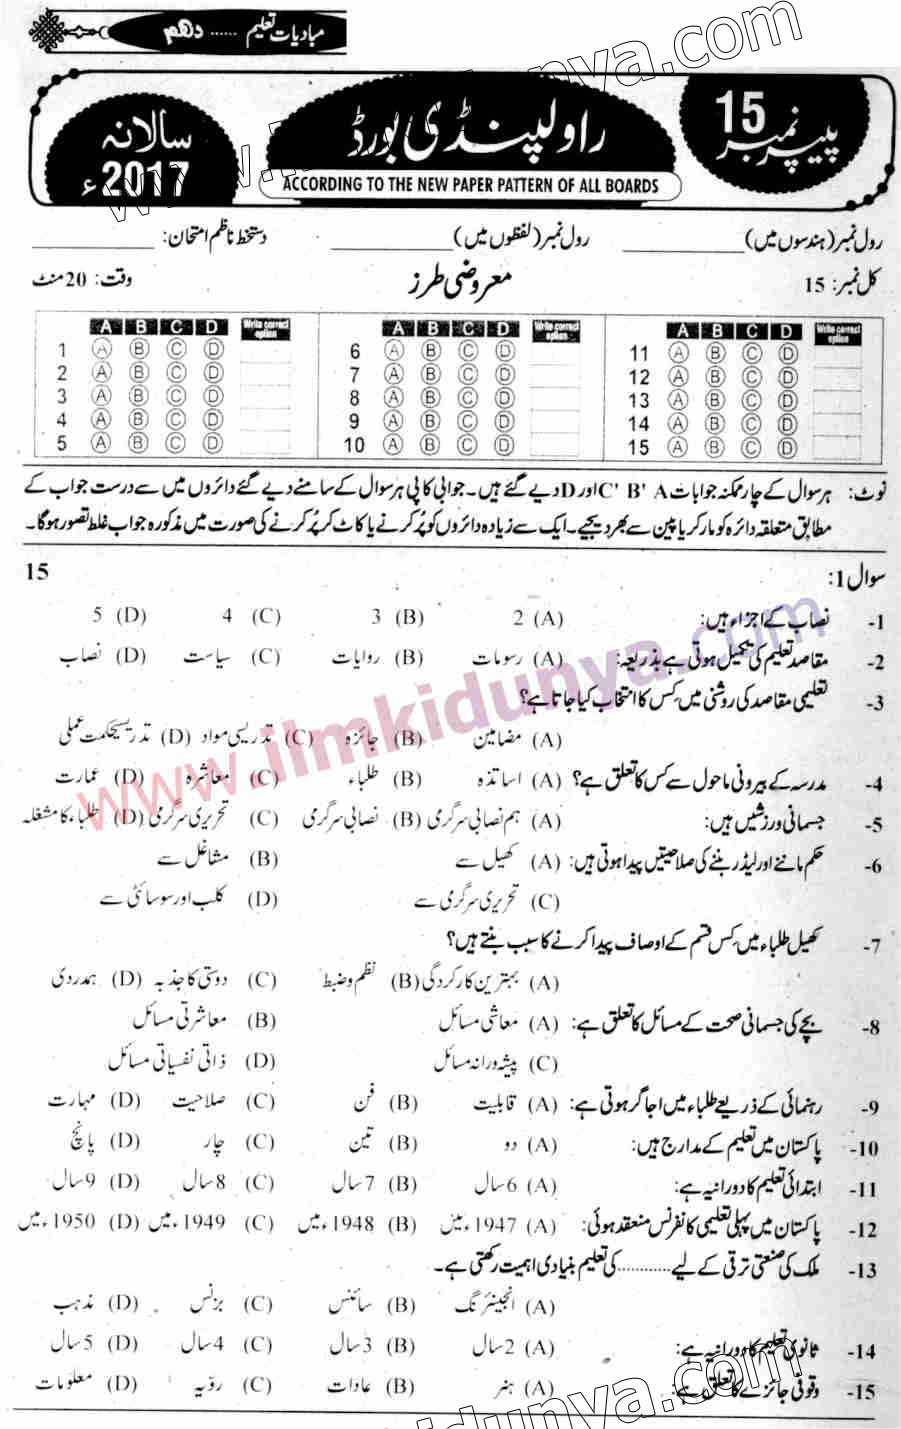 مبادیات تعلیم ...... دھم
پیپر نمبر 15
راولپنڈی بورڈ
سالانہ 2017ء
ACCORDING TO THE NEW PAPER PATTERN OF ALL BOARDS
رول نمبر (ہندسوں میں) ____________ رول نمبر (لفظوں میں) ____________ دستخط ناظم امتحان: ____________
کل نمبر: 15 معروضی طرز وقت: 20 منٹ
A B C D Write correct option A B C D Write correct option A B C D Write correct option
1 A B C D 6 A B C D 11 A B C D
2 A B C D 7 A B C D 12 A B C D
3 A B C D 8 A B C D 13 A B C D
4 A B C D 9 A B C D 14 A B C D
5 A B C D 10 A B C D 15 A B C D
نوٹ: ہر سوال کے چار ممکنہ جوابات A 'B 'C اور D دیے گئے ہیں۔ جوابی کاپی ہر سوال کے سامنے دیے گئے دائروں میں سے درست جواب کے
مطابق متعلقہ دائرہ کو مارکر یا پین سے بھر دیجیے۔ ایک سے زیادہ دائروں کو پُر کرنے یا کاٹ کر پُر کرنے کی صورت میں مذکورہ جواب غلط تصور ہوگا۔
سوال 1: 15
1- نصاب کے اجزاء ہیں: (A) 2 (B) 3 (C) 4 (D) 5
2- مقاصد تعلیم کی تکمیل ہوتی ہے بذریعہ: (A) رسومات (B) روایات (C) سیاست (D) نصاب
3- تعلیمی مقاصد کی روشنی میں کس کا انتخاب کیا جاتا ہے؟
(A) مضامین (B) جائزہ (C) تدریسی مواد (D) تدریسی حکمت عملی
4- مدرسہ کے بیرونی ماحول سے کس کا تعلق ہے؟ (A) اساتذہ (B) طلباء (C) معاشرہ (D) عمارت
5- جسمانی ورزشیں ہیں: (A) ہم نصابی سرگرمی (B) نصابی سرگرمی (C) تحریری سرگرمی (D) طلباء کا مشغلہ
6- حکم ماننے اور لیڈر بننے کی صلاحیتیں پیدا ہوتی ہیں: (A) کھیل سے (B) مشاغل سے
(C) تحریری سرگرمی سے (D) کلب اور سوسائٹی سے
7- کھیل طلباء میں کس قسم کے اوصاف پیدا کرنے کا سبب بنتے ہیں؟
(A) بہترین کارکردگی (B) نظم و ضبط (C) دوستی کا جذبہ (D) ہمدردی
8- بچے کی جسمانی صحت کے مسائل کا تعلق ہے: (A) معاشی مسائل (B) معاشرتی مسائل
(C) پیشہ ورانہ مسائل (D) ذاتی نفسیاتی مسائل
9- رہنمائی کے ذریعے طلباء میں اجاگر ہوتی ہے: (A) قابلیت (B) فن (C) صلاحیت (D) مہارت
10- پاکستان میں تعلیم کے مدارج ہیں: (A) دو (B) تین (C) چار (D) پانچ
11- ابتدائی تعلیم کا دورانیہ ہے: (A) 6 سال (B) 7 سال (C) 8 سال (D) 9 سال
12- پاکستان میں پہلی تعلیمی کانفرنس منعقد ہوئی: (A) 1947ء میں (B) 1948ء میں (C) 1949ء میں (D) 1950ء میں
13- ملک کی صنعتی ترقی کے لیے ........... کی تعلیم بنیادی اہمیت رکھتی ہے۔
(A) انجینئرنگ (B) سائنس (C) بزنس (D) مذہب
14- ثانوی تعلیم کا دورانیہ ہے: (A) 2 سال (B) 3 سال (C) 4 سال (D) 5 سال
15- وقوفی جائزے کا تعلق ہے: (A) ہنر (B) عادات (C) رویہ (D) معلومات
www.ilmkidunya.com